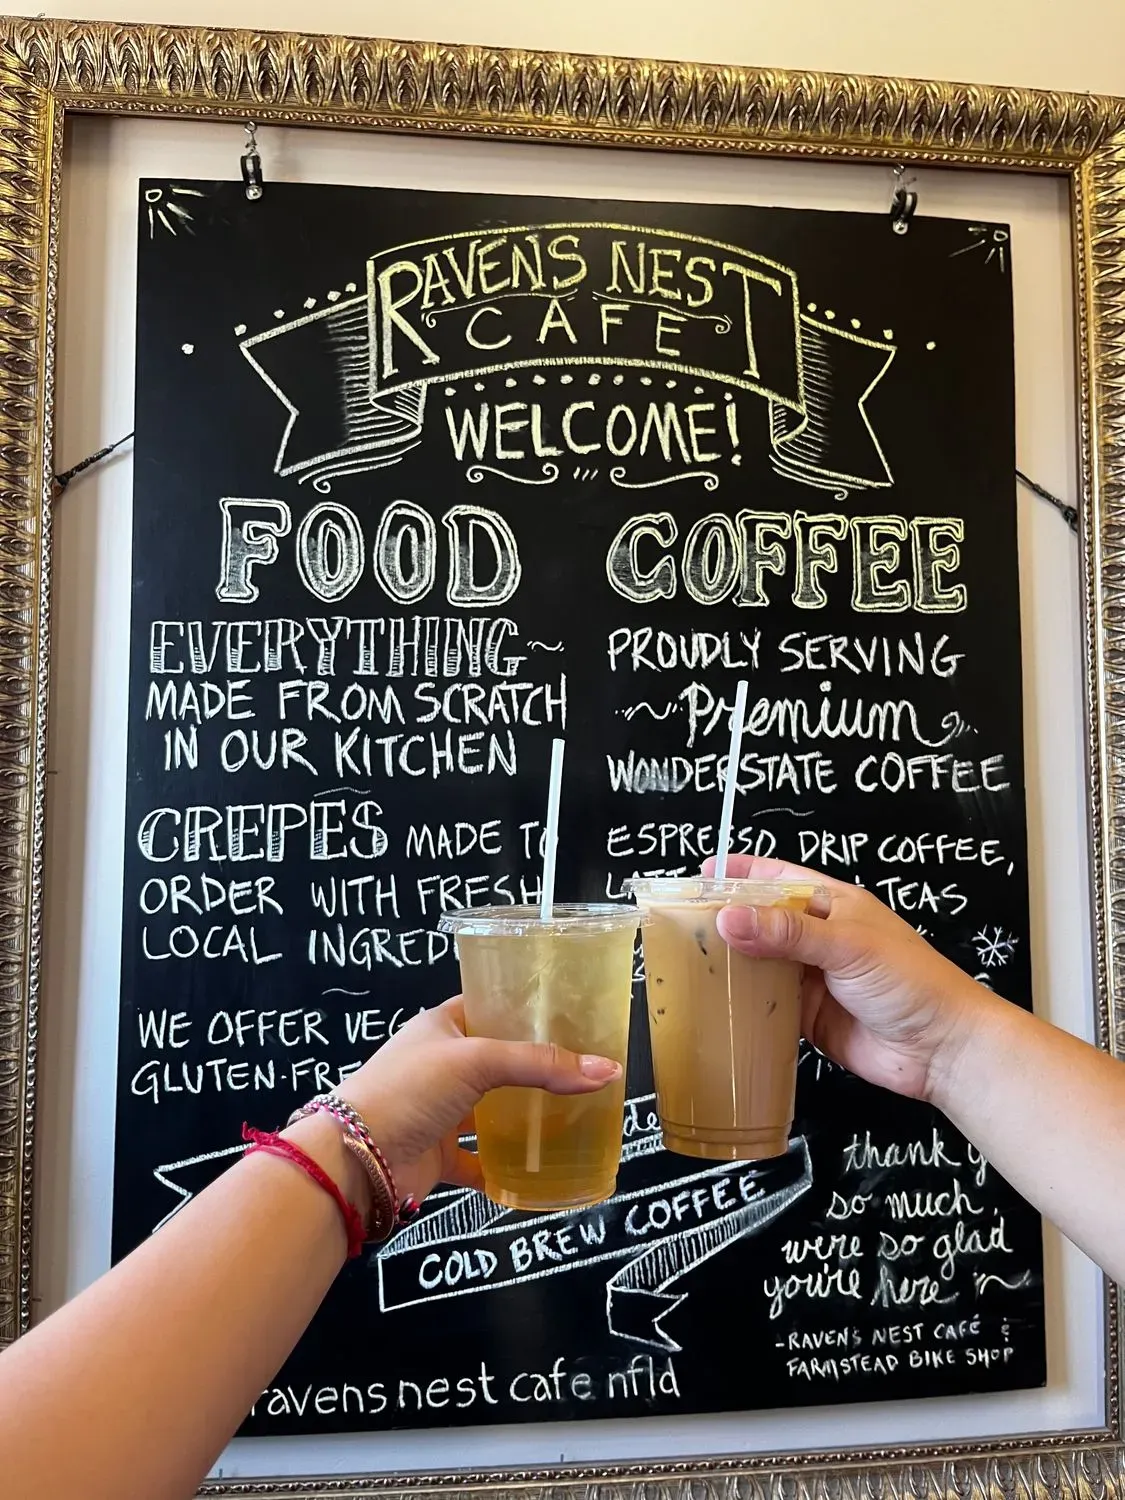 RAVENS NEST
CAFE
WELCOME!
FOOD
EVERYTHING
MADE FROM SCRATCH
IN OUR KITCHEN
CREPES MADE TO
ORDER WITH FRESH
LOCAL
WE OFFER
COFFEE
PROUDLY SERVING
Premium
WONDERSTATE COFFEE
ESPRESSO DRIP COFFEE,
TEAS
COLD BREW COFFEE
thank
so much,
we're so glad
you're here
-RAVENS NEST CAFÉ &
FARMSTEAD BIKE SHOP
ravens nest cafe nfld